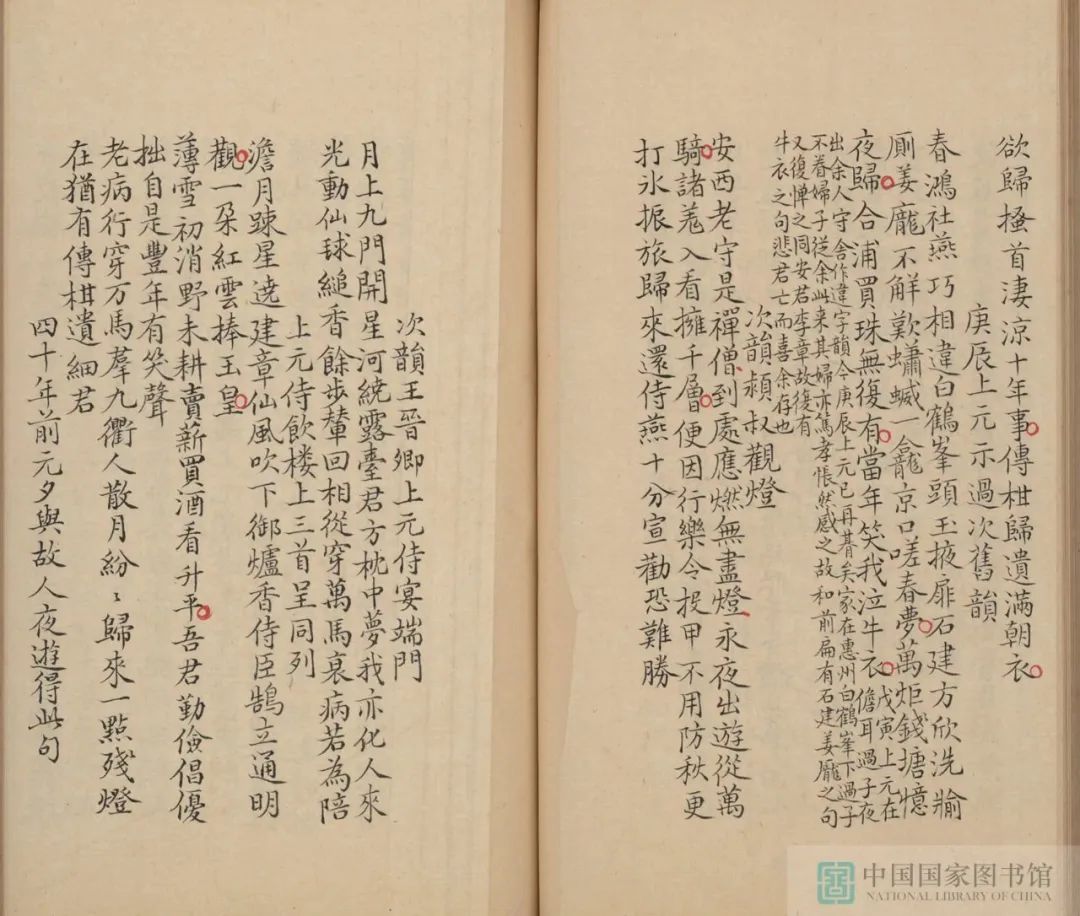 欲歸搔首淒涼十年事傳柑歸遺滿朝衣
庚辰上元示過次舊韻
春鴻社燕巧相違白鶴峯頭玉掖扉石建方欣洗牏
厠姜龐不解歎蠨蝛一龕京口嗟春夢萬炬錢塘憶
夜歸合浦買珠無復有當年笑我泣牛衣戊寅上元在儋耳過子夜
出余人守舍作違字韻今庚辰上元已再朞矣家在惠州白鶴峯下過子
不眷婦子從余此来其婦亦篤孝悵然感之故和前扁有石建姜龐之句
又復悼之同安君李章故復有
牛衣之句悲君亡而喜余存也
次韻穎叔觀燈
安西老守是禪僧到處應燃無盡燈永夜出遊從萬
騎諸羗入看擁千層便因行樂令投甲不用防秋更
打氷振旅歸來還侍燕十分宣勸恐難勝
次韻王晉卿上元侍宴端門
月上九門開星河繞露臺君方枕中夢我亦化人來
光動仙毬縋香餘步輦回相從穿萬馬衰病若為陪
上元侍飲楼上三首呈同列
澹月踈星遶建章仙風吹下御爐香侍臣鵠立通明
觀一朶紅雲捧玉皇
薄雪初消野未耕賣薪買酒看升平吾君勤儉倡優
拙自是豐年有笑聲
老病行穿万馬羣九衢人散月紛〻歸來一點殘燈
在猶有傳柑遺細君
四十年前元夕與故人夜遊得此句
中国国家图书馆
NATIONAL LIBRARY OF CHINA